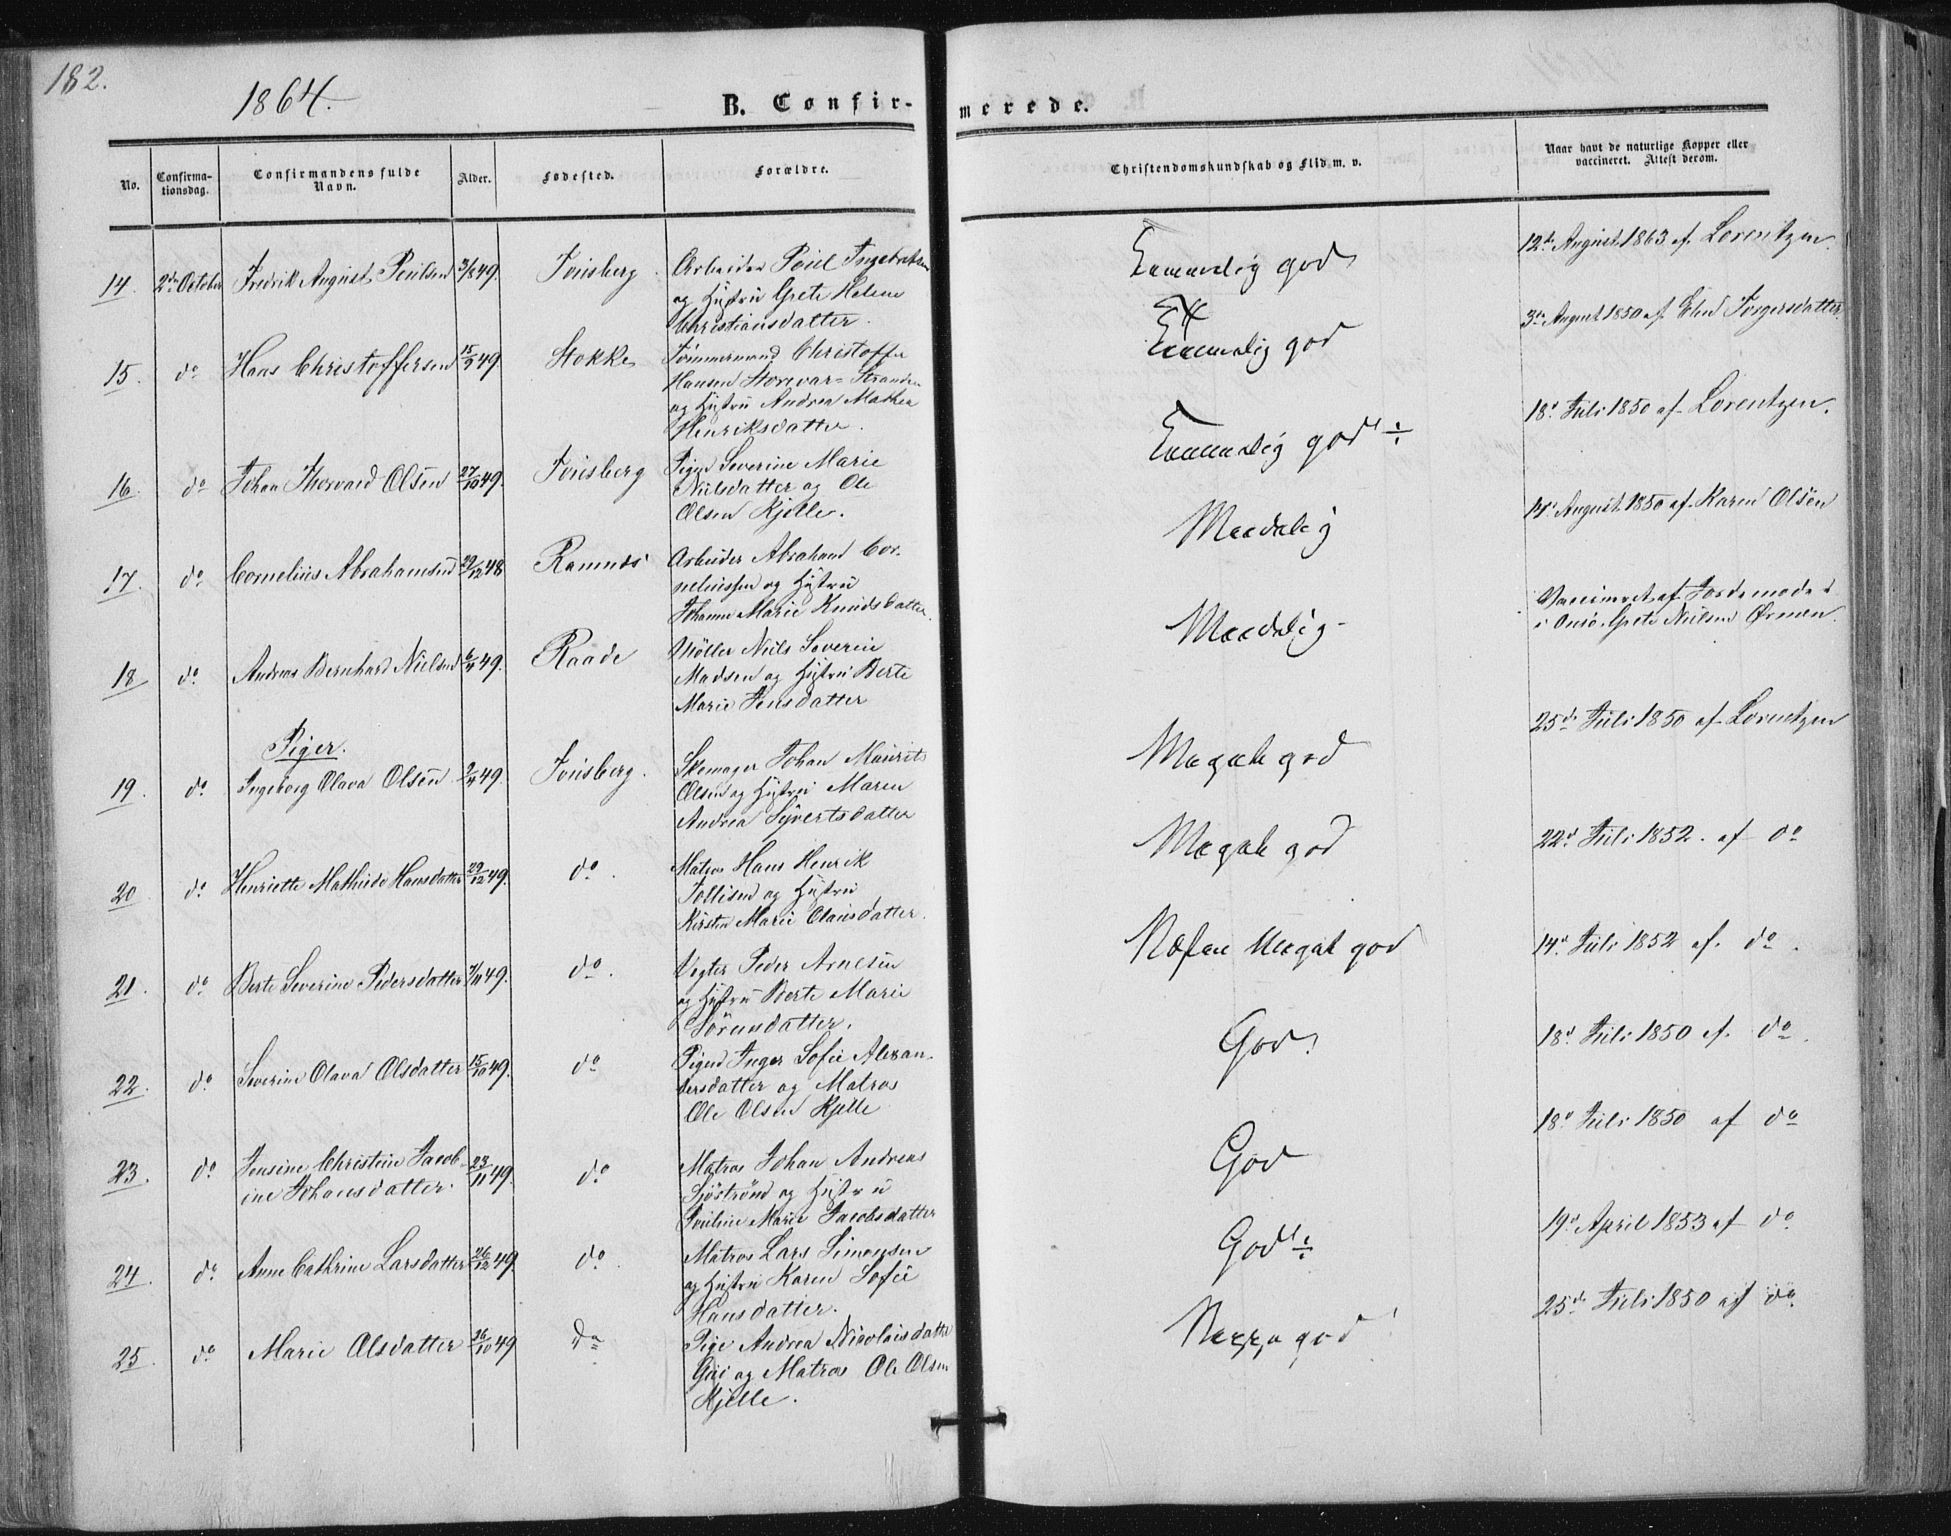 182.
1864.
B. Confir-
merede.
No.
Confirma-
tionsdag.
Confirmandens fulde
Navn.
Alder.
Fødested.
Forældre.
Christendomskundskab og Flid m. v.
Naar havt de naturlige Kopper eller
vaccineret. Attest derom.
14. 2de October Fredrik August Poulsen 3/8 49. Tønsberg Arbeider Poul Ingebretsen
og Hustru Grete Helene
Christiansdatter.
Temmelig god
12te August 1863 af Lorentzen.
15. do Hans Christoffersen 15/9 49 Stokke Tømmermand Christoffer
Hansen Storevar-Stranden
og Hustru Andrea Mathea
Henriksdatter.
Temmelig god
3die August 1850 af Elen Torgersdatter.
16. do Johan Thorvald Olsen 27/10 49. Tønsberg Pigen Severine Marie
Nielsdatter og Ole
Olsen Kjelle.
Temmelig god ÷
18d Juli 1850 af Lorentzen.
17. do Cornelius Abrahamsen 29/12 48 Ramnes Arbeider Abraham Cor-
neliussen og Hustru
Johanne Marie Knudsdatter.
Maadelig
14d August 1850 af Karen Olsen
18 do Andreas Bernhard Nielsen 6/4 49. Raade Møller Niels Severin
Madsen og Hustru Berte
Marie Jensdatter
Maadelig-
Vaccineret af Jordemoder
i Onsø Grete Nielsen Ørmen.
Piger.
19. do Ingeborg Olava Olsen 2/4 49. Tønsberg. Skomager Johan Maurits
Olsen og Hustru Maren
Andrea Syvertsdatter
Meget god
25de Juli 1850 af Lorentzen
20 do Henriette Mathilde Hansdatter 29/12 49. do. Matros Hans Henrik
Tollisen og Hustru
Kirsten Marie Olausdatter.
Meget god
22d Juli 1852. af do
21. do Berte Severine Pedersdatter 7/11 49. do. Vegter Peder Arnesen
og Hustru Berte Marie
Sörensdatter.
Næsten Meget god
14d Juli 1852 af. do.
22. do Severine Olava Olsdatter 15/10 49. do Pigen Inger Sofie Alexan-
dersdatter og Matros
Ole Olsen Kjelle
God
18d Juli 1850 af. do.
23. do Jensine Christine Jacob-
ine Johansdatter. 23/11 49. do Matros Johan Andreas
Sjöström og Hustru
Pouline Marie Jacobsdatter
God
18d Juli 1850 af do
24. do Anne Cathrine Larsdatter 26/12 49. do. Matros Lars Simonsen
og Hustru Karen Sofie
Hansdatter.
God ÷
19d April 1853 af do
25. do Marie Olsdatter 16/10 49 Do Pige Andrea Nicolaisdatter
og Matros Ole Olsen
Kjelle.
god
25de Juli 1850 af do